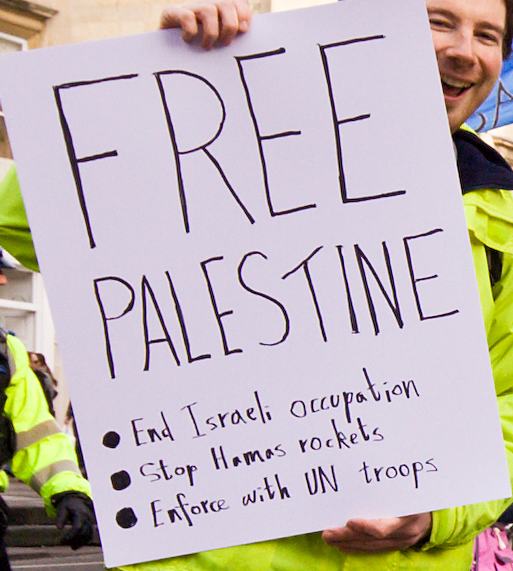 FREE
PALESTINE
● End Israeli occupation
● Stop Hamas rockets
● Enforce with UN troops